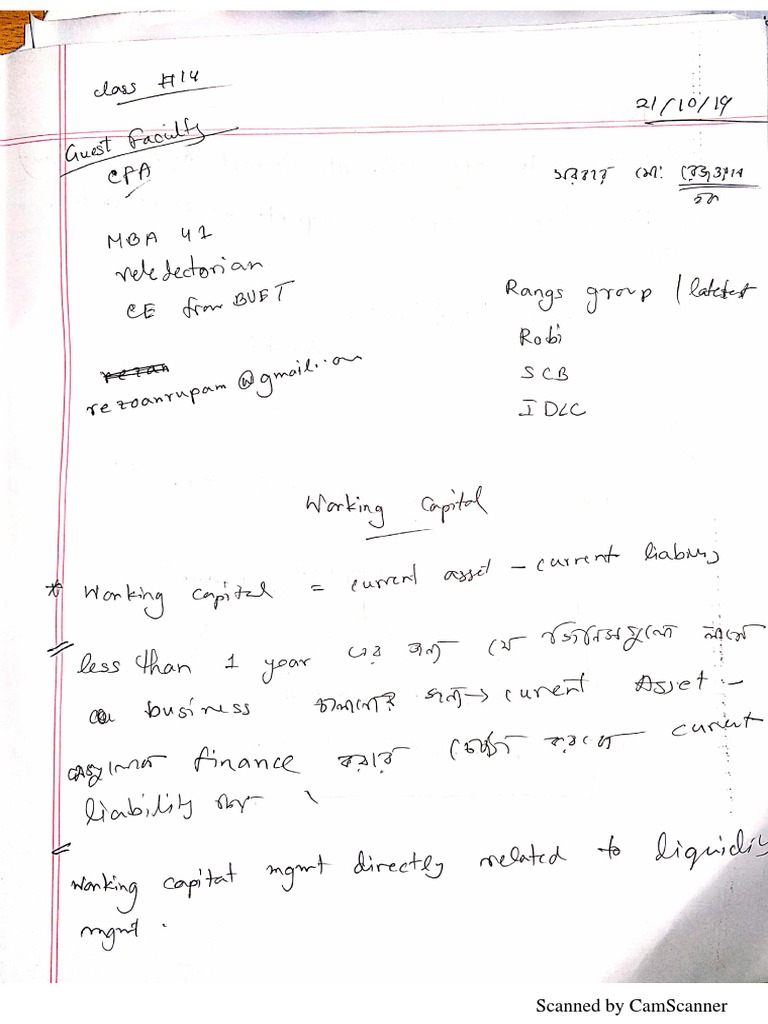 class #14
21/10/19
Guest Faculty
CFA
সরদার মো: রেজওয়ান
হক
MBA 41
veledectorian
CE from BUET
Rangs group / latest
Robi
SCB
IDLC
rezoanrupam@gmail.com
Working Capital
* Working capital = current asset - current liability
less than 1 year এর জন্য যে জিনিসগুলো লাগে
business চালানোর জন্য → current Asset :-
এগুলো finance করার চেষ্টা করলে current
liability
Working capital mgmt directly related to liquidity
mgmt.
Scanned by CamScanner